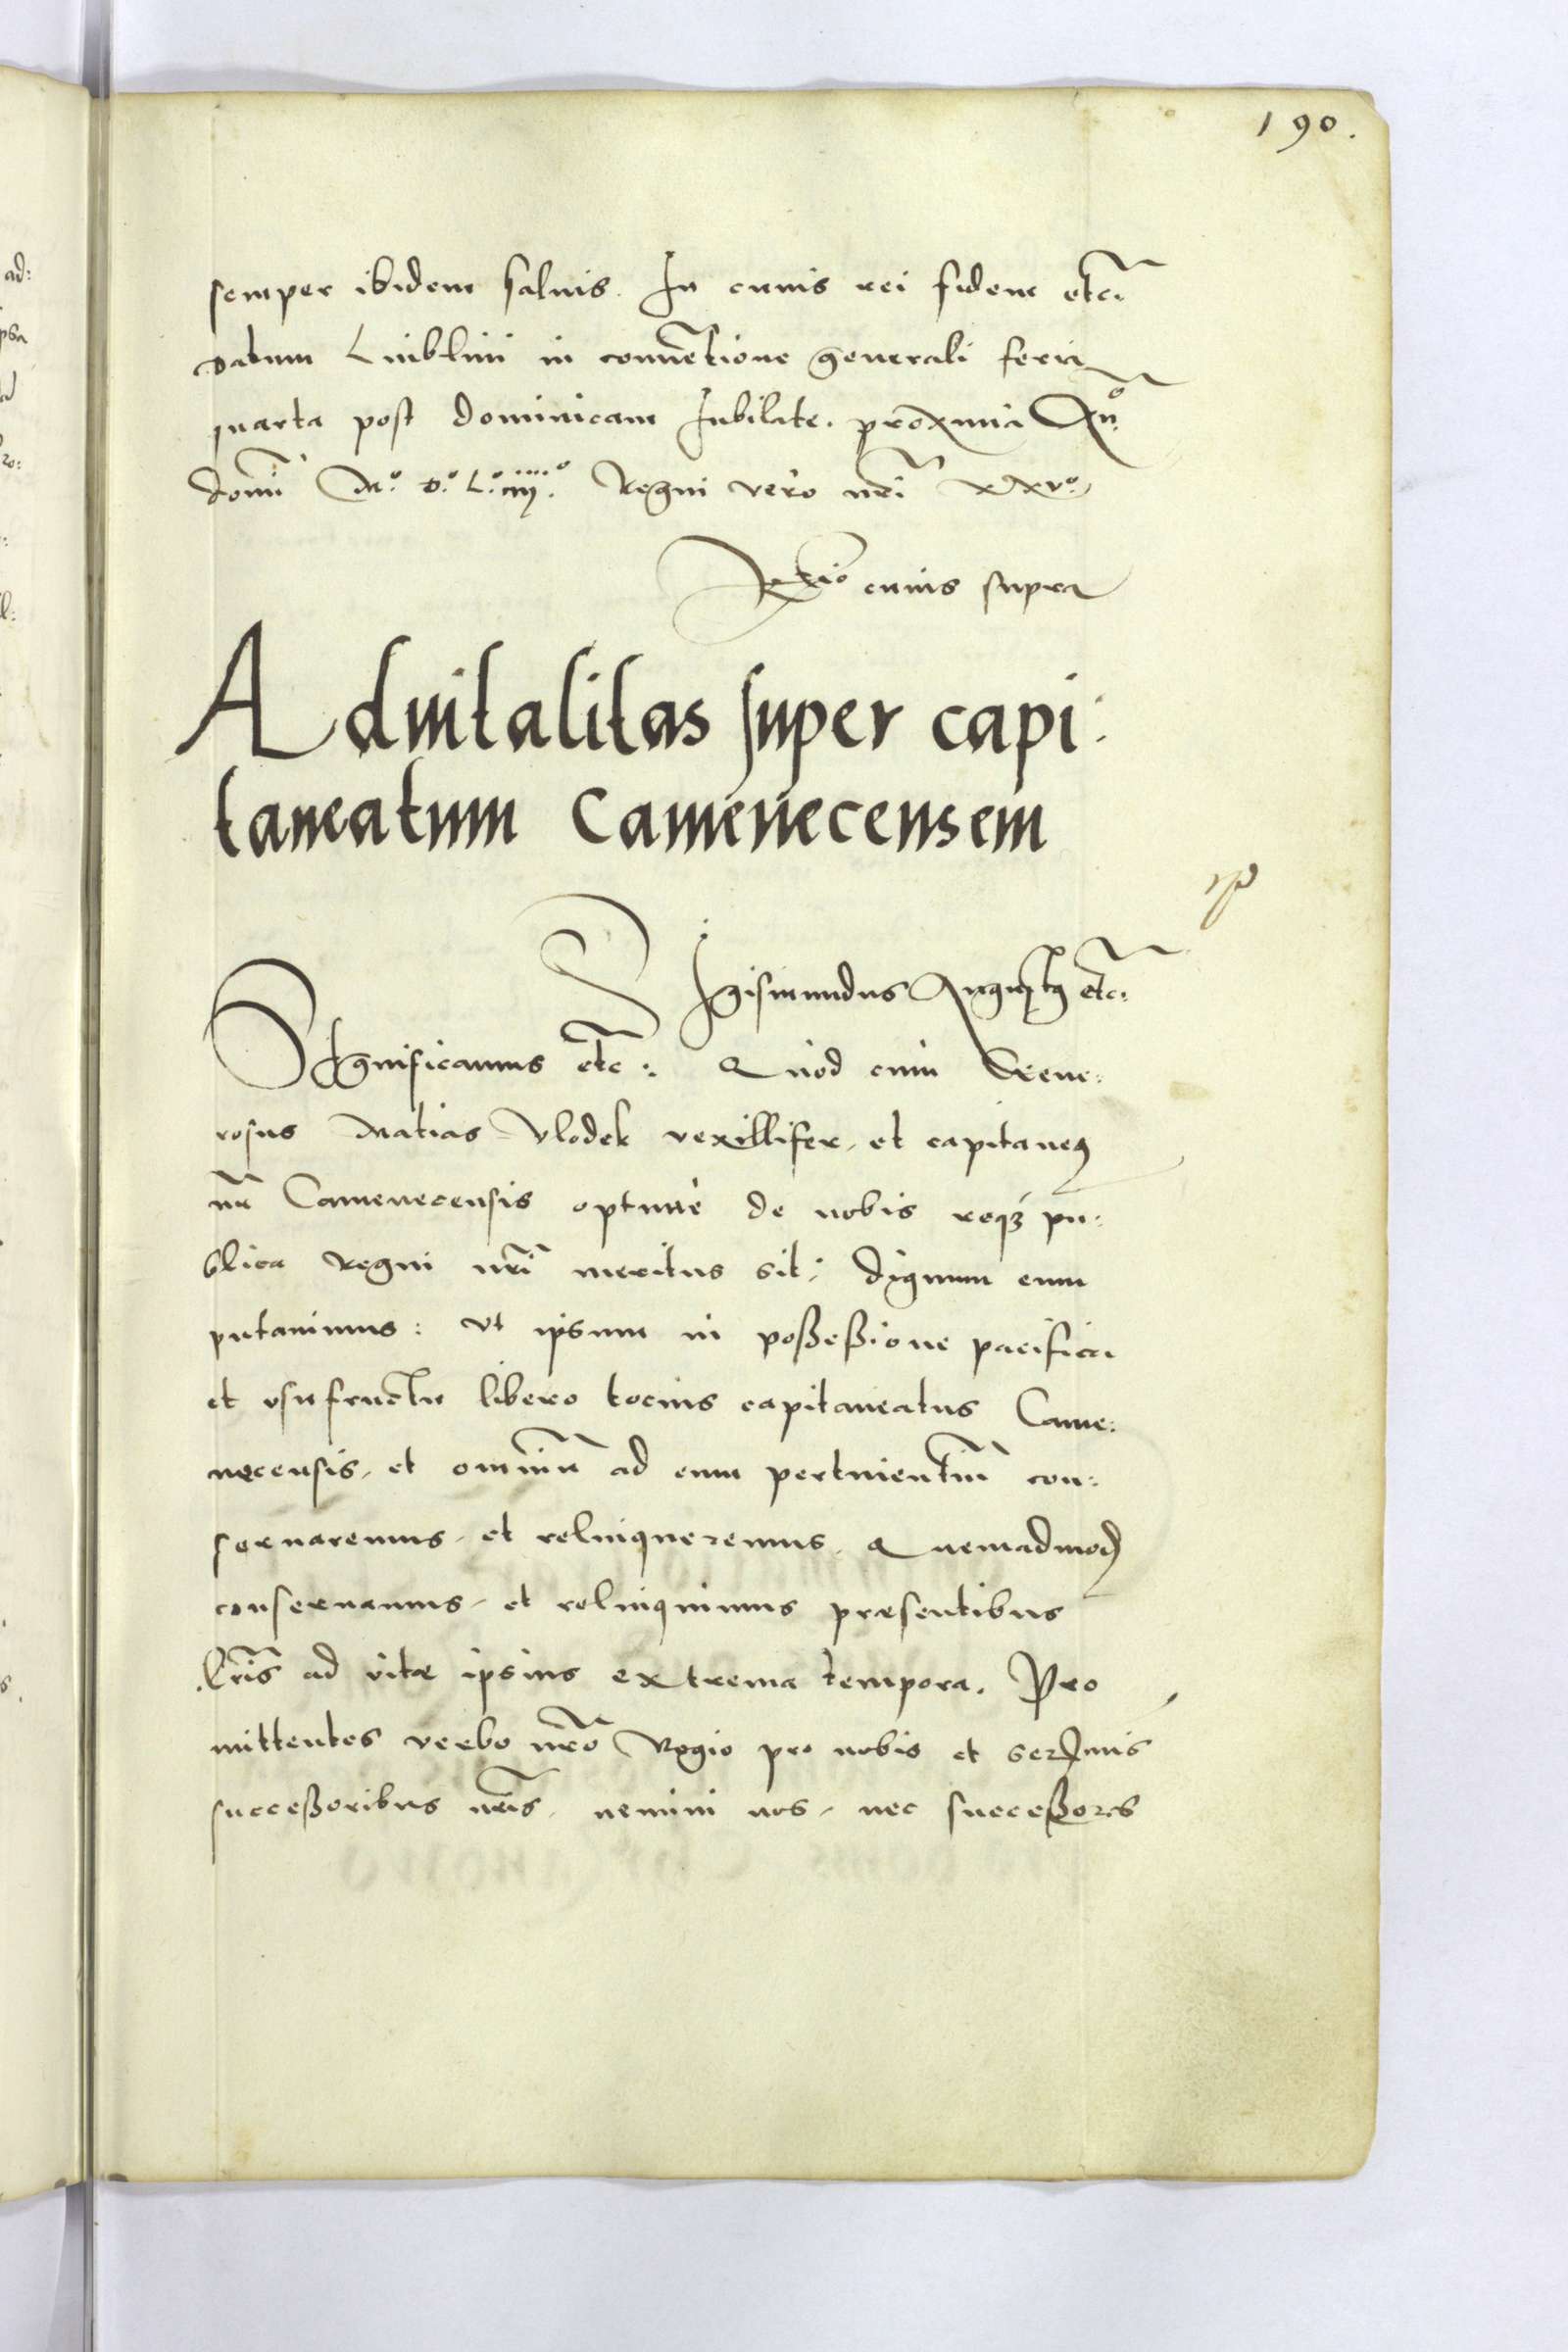 190.
semper ibidem saluis. In cuius rei fidem etc.
Datum Lublini in conuẽtione generali feria
quarta post dominicam Iubilate. proxima Anº
domi Mº. Dº. Lº. iiijº. Regni vero nri xxvº
Rtio cuius supra
Aduitalitas super capi:
taneatum Camenecensem
Sigismundus Augustus etc.
Significamus etc: Quod cum Gene:
rosus Matias Vlodek vexillifer, et capitaneus
nr Camenecensis optime de nobis reqȝ pu:
blica Regni nri meritus sit, dignum eum
putauimus: vt ipsum in poßeßione pacifica
et vsufructu libero tocius capitaneatus Came:
necensis, et omniũ ad eum pertinentiũ con:
seruaremus, et relinqueremus. Quemadmod
conseruamus, et relinquimus præsentibus
lris ad vitæ ipsius extrema tempora. Pro
mittentes verbo nro Regio pro nobis et serẽmis
succeßoribus nris, nemini nos, nec succeßores